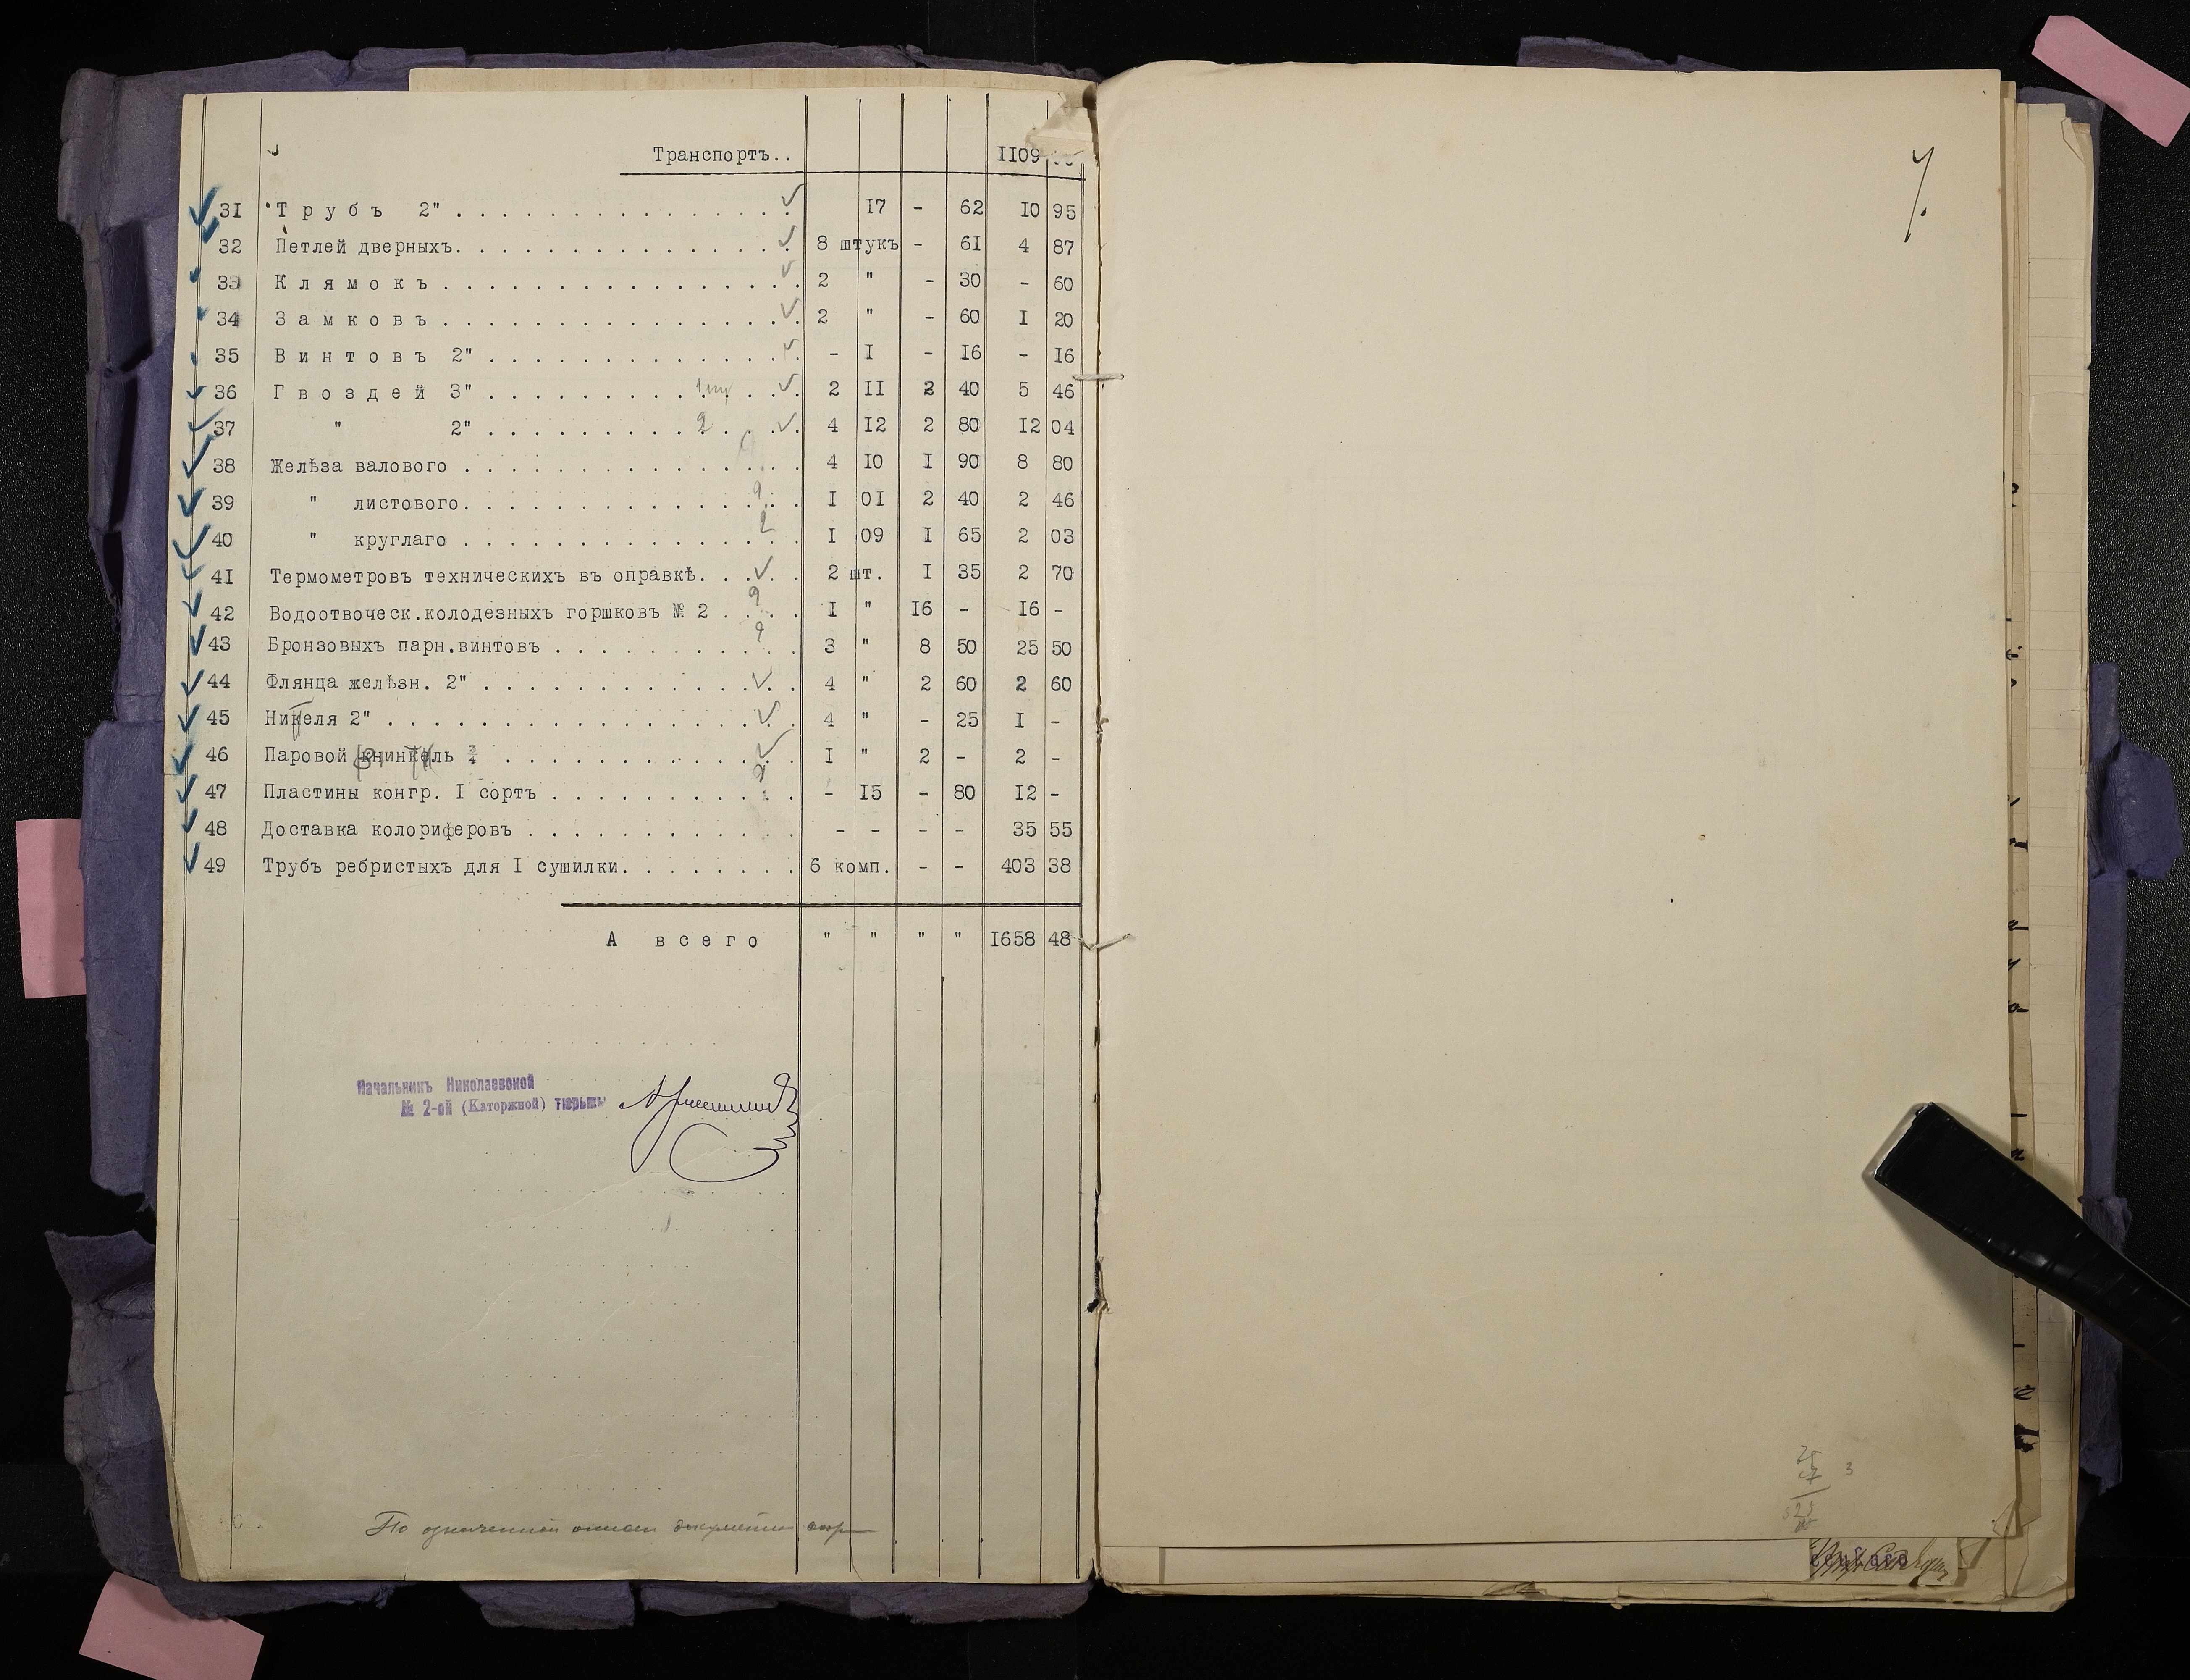 Транспортъ.. 1109
31 Трубъ 2" 17 - 62 10 95
32 Петлей дверныхъ. 8 штукъ - 61 4 87
33 Клямокъ 2 " - 30 - 60
34 Замковъ 2 " - 60 I 20
35 Винтовъ 2" - I - I6 - I6
36 Гвоздей 3" 1 пуд 2 II 2 40 5 46
37 " 2" 2 4 I2 2 80 I2 04
38 Желѣза валового 4 I0 I 90 8 80
39 " листового. I 0I 2 40 2 46
40 " круглаго I 09 I 65 2 03
4I Термометровъ техническихъ въ оправкѣ. 2 шт. I 35 2 70
42 Водоотвоческ.колодезныхъ горшковъ № 2 I " I6 - I6 -
43 Бронзовыхъ парн.винтовъ 3 " 8 50 25 50
44 Флянца желѣзн. 2" 4 " 2 60 2 60
45 Никеля 2" 4 " - 25 I -
46 Паровой ¾ I " 2 - 2 -
47 Пластины конгр. I сортъ - I5 - 80 I2 -
48 Доставка колориферовъ - - - - 35 55
49 Трубъ ребристыхъ для I сушилки. 6 комп. - - 403 38
А всего " " " " I658 48
Начальникъ Николаевской
№ 2-ой (Каторжной) тюрьмы
По означенной описи документы
7.
25
3